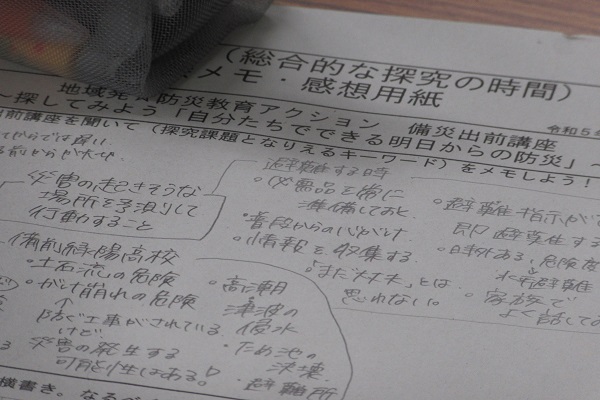 （総合的な探究の時間）
メモ・感想用紙
令和５年
地域発！防災教育アクション　備災出前講座
～探してみよう「自分たちでできる明日からの防災」～
出前講座を聞いて（探究課題となりえるキーワード）をメモしよう！
災害の起きそうな
場所を予測して
行動すること
避難する時
・必需品を常に
準備しておく
・普段からの心がけ
・情報を収集する
・「まだ大丈夫」とは
思わない。
・避難指示がで
即避難する
危険度
水平避難
・家族で
よく話してお
備前緑陽高校
・土石流の危険
・がけ崩れの危険
↑
防ぐ工事がされている
けど
災害の発生する
可能性はある！
・高潮
津波の
侵水
・ため池の
決壊
・避難所
横書き。なるべ